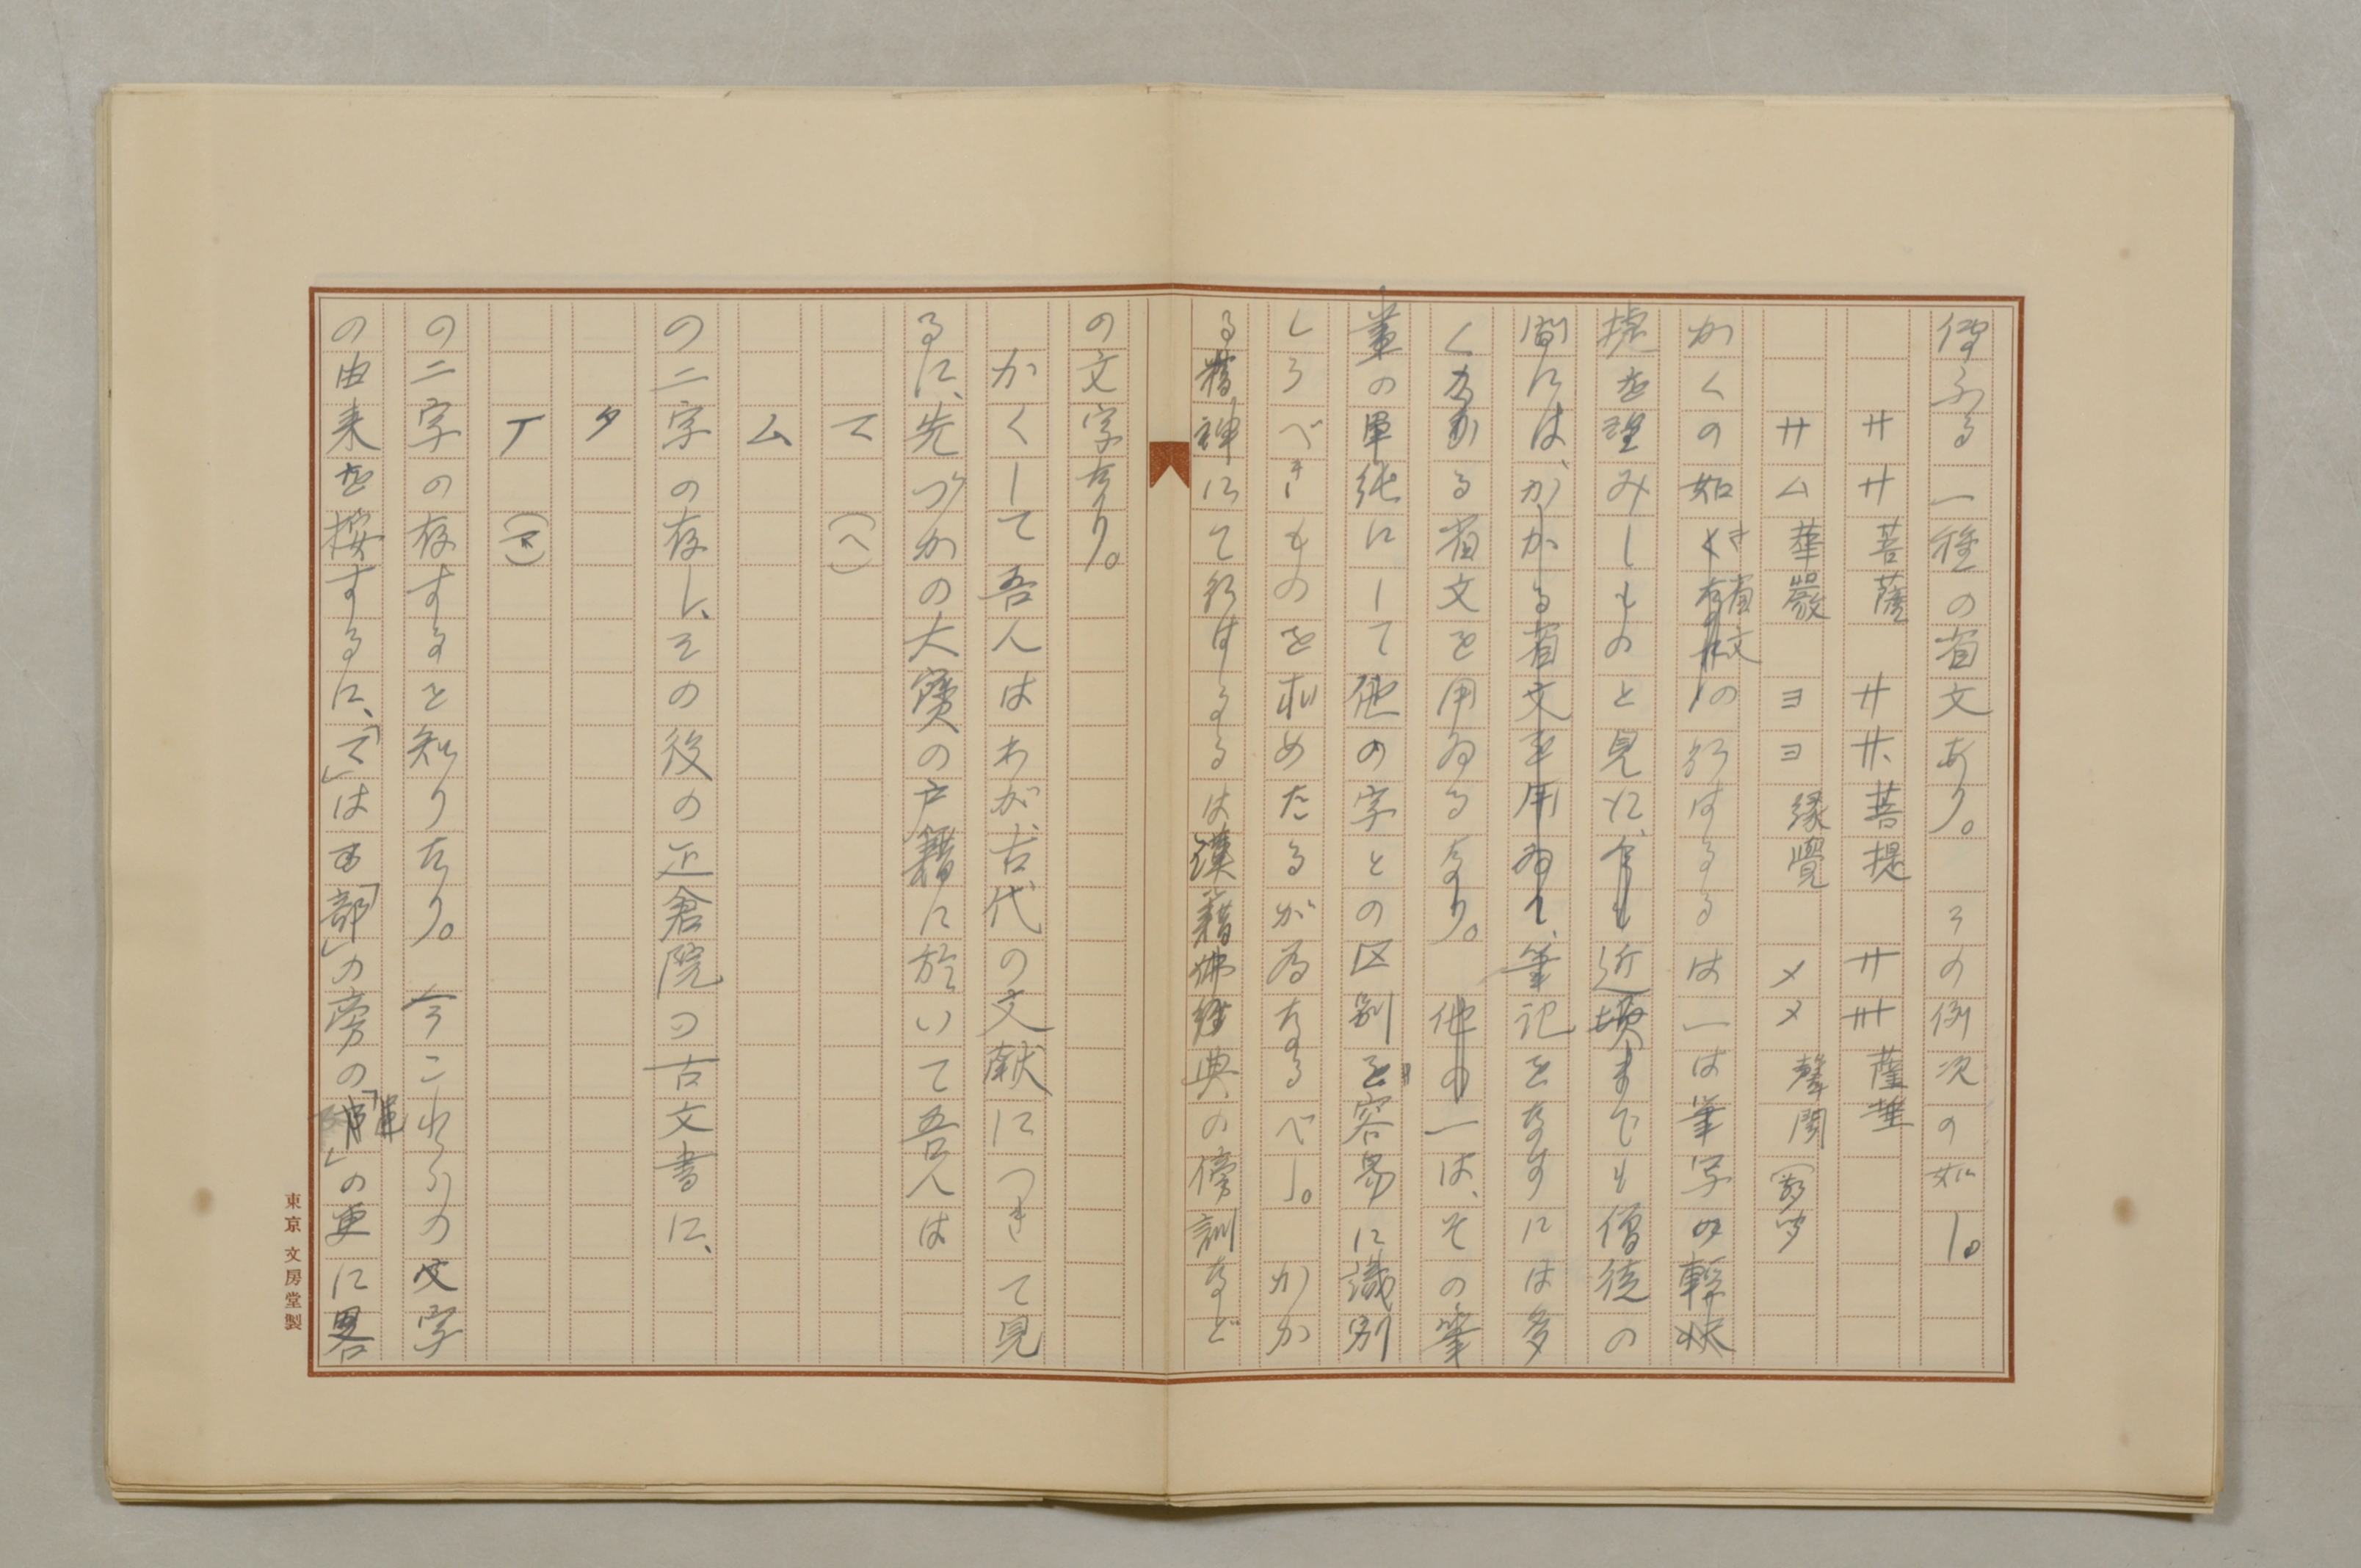 ふる一種の省文あり。その例次の如し。
サササ菩薩　サ𠮟菩提　サ卅薩埵
サム華嚴　ヨヨ縁覺　メメ聲聞
かくの如き省文の行はるるは一は筆写の軽快
捷を望みしものと見に、近頃までも僧徒の
間には、筆記をなすには多
くかかる省文を用ゐるなり。他の一は、その筆
畫の単純にして他の字との区別を容易に識別
しうべきものを求めたるが為なるべし。かか
る精神にて行はるるは漢籍佛経典の傍訓など
の文字なり。
かくして吾人はわが古代の文献につきて見
るに、先づかの大寳の戸籍に於いて吾人は
て（へ）
ム
の二字の存し、その後の正倉院の古文書に、
タ
丁（マ）
の二字の存するを知りたり。今これらの文字
の由来を按するに、「て」は「部」の旁の「」の更に畧
東京文房堂製